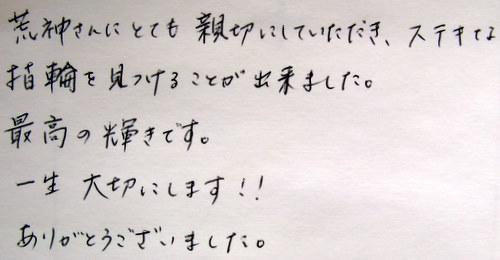 荒神さんにとても親切にしていただき、ステキな
指輪を見つけることが出来ました。
最高の輝きです。
一生 大切にします!!
ありがとうございました。